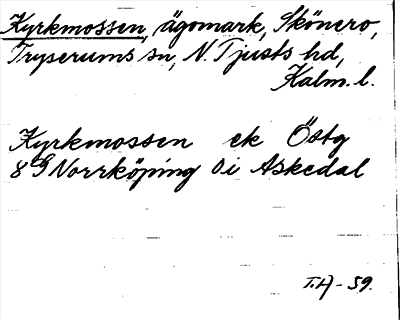 Kyrkmossen, ägomark, Skönero,
Tryserums sn, N. Tjusts hd,
Kalm. l.
Kyrkmossen ek Östg
8 G Norrköping Öi Askedal
T.H - 59.